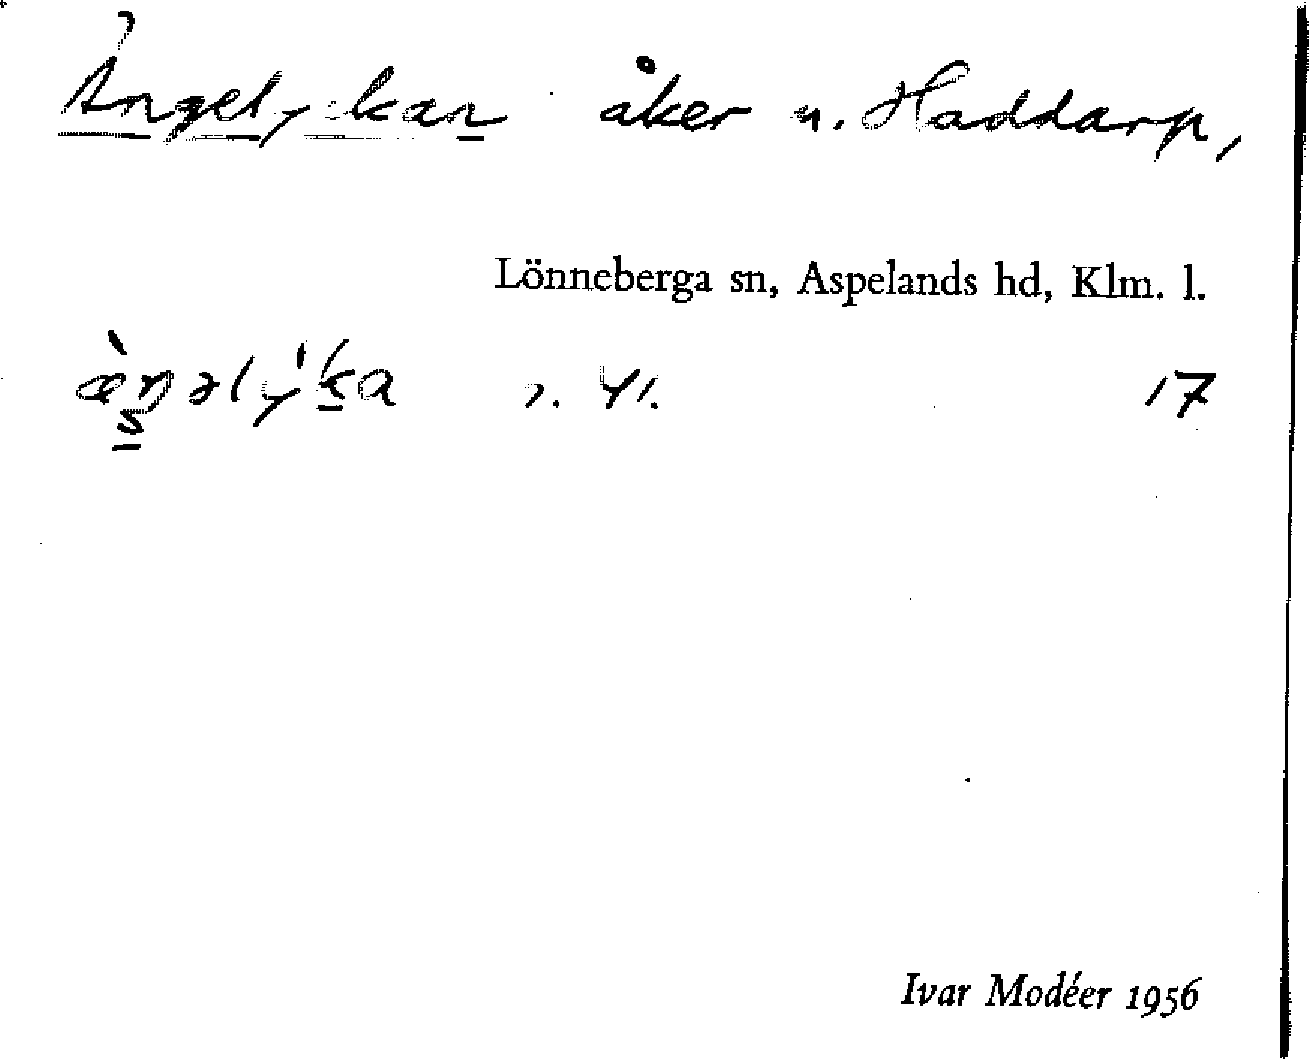 Ängelyckan åker n. Haddarp,
Lönneberga sn, Aspelands hd, Klm. l.
17
Ivar Modéer 1956